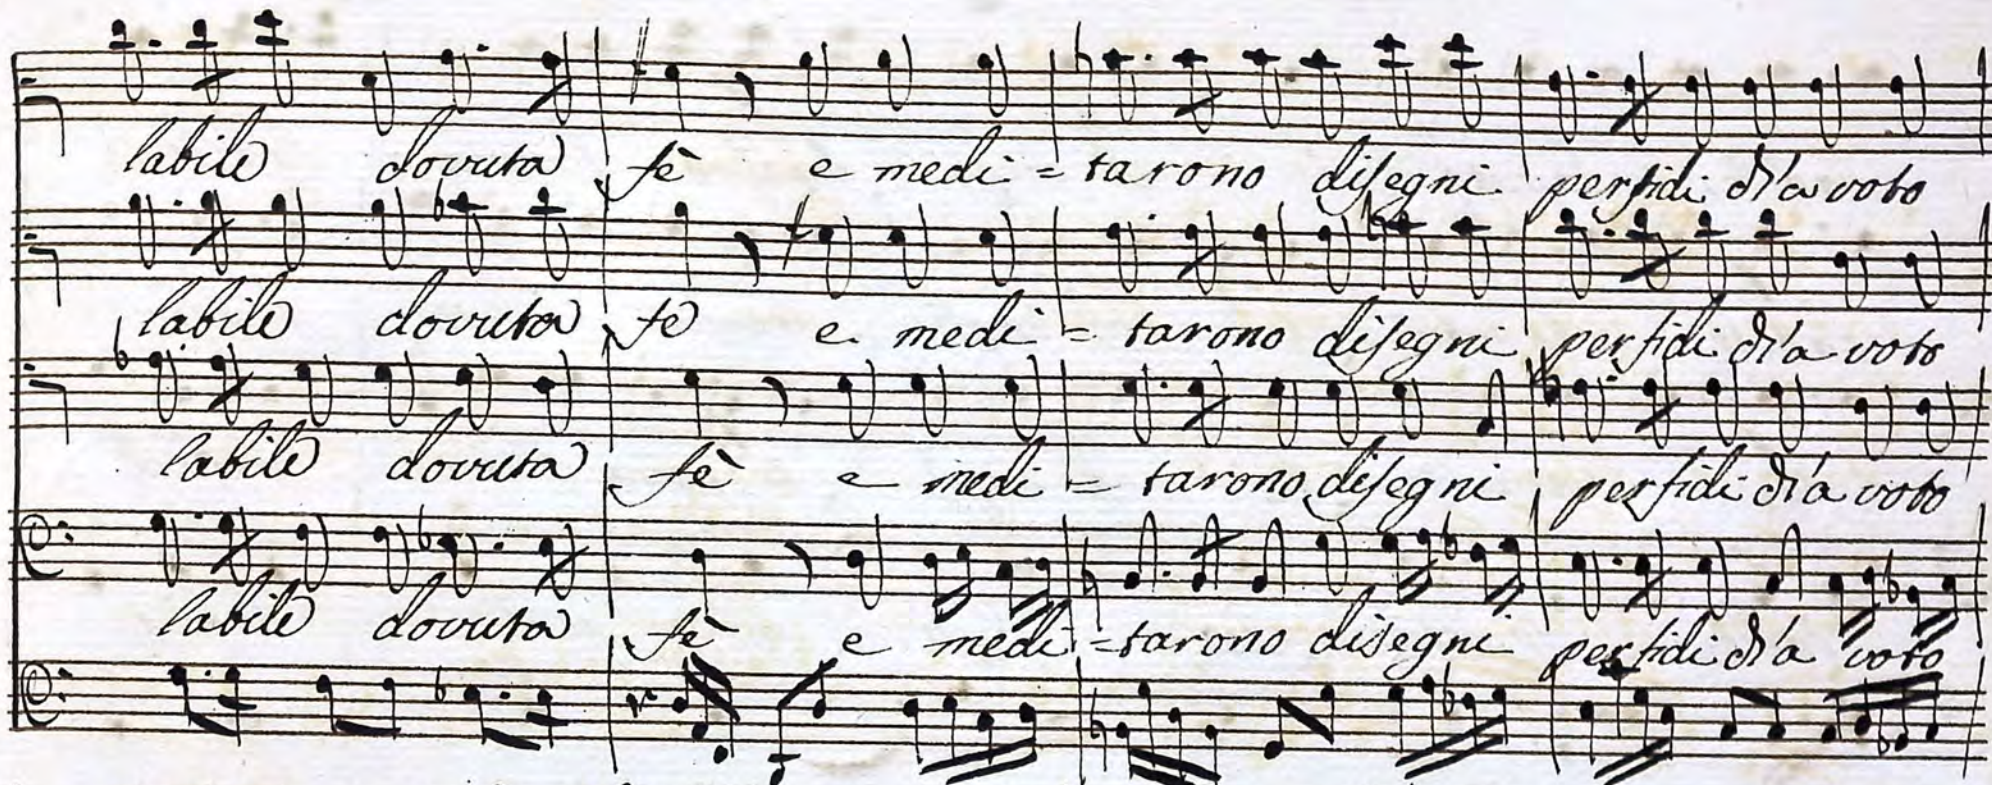 labile dovuta fè e medi = tarono disegni perfidi d'a voto
labile dovuta fe e medi = tarono disegni perfidi d'a voto
labile dovuta fè e medi = tarono disegni perfidi d'a voto
labile dovuta fè e medi = tarono disegni perfidi d'a voto